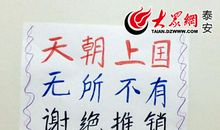 大众網
泰安
TAIAN.DZWWW.COM
天朝上囯
无所不有
谢绝推销